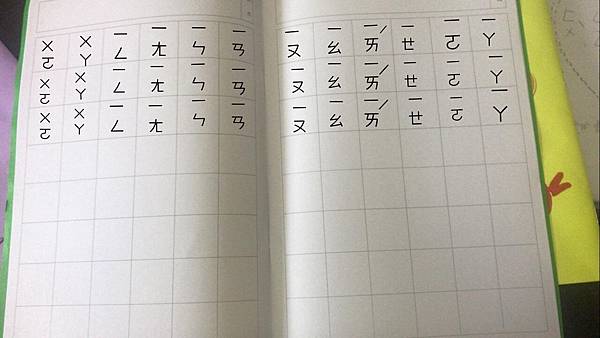 ㄧㄚㄧㄚㄧㄚ
ㄧㄛㄧㄛㄧㄛ
ㄧㄝㄧㄝㄧㄝ
ㄧㄞˊㄧㄞˊㄧㄞˊ
ㄧㄠㄧㄠㄧㄠ
ㄧㄡㄧㄡㄧㄡ
ㄧㄢㄧㄢㄧㄢ
ㄧㄣㄧㄣㄧㄣ
ㄧㄤㄧㄤㄧㄤ
ㄧㄥㄧㄥㄧㄥ
ㄨㄚㄨㄚㄨㄚ
ㄨㄛㄨㄛㄨㄛ